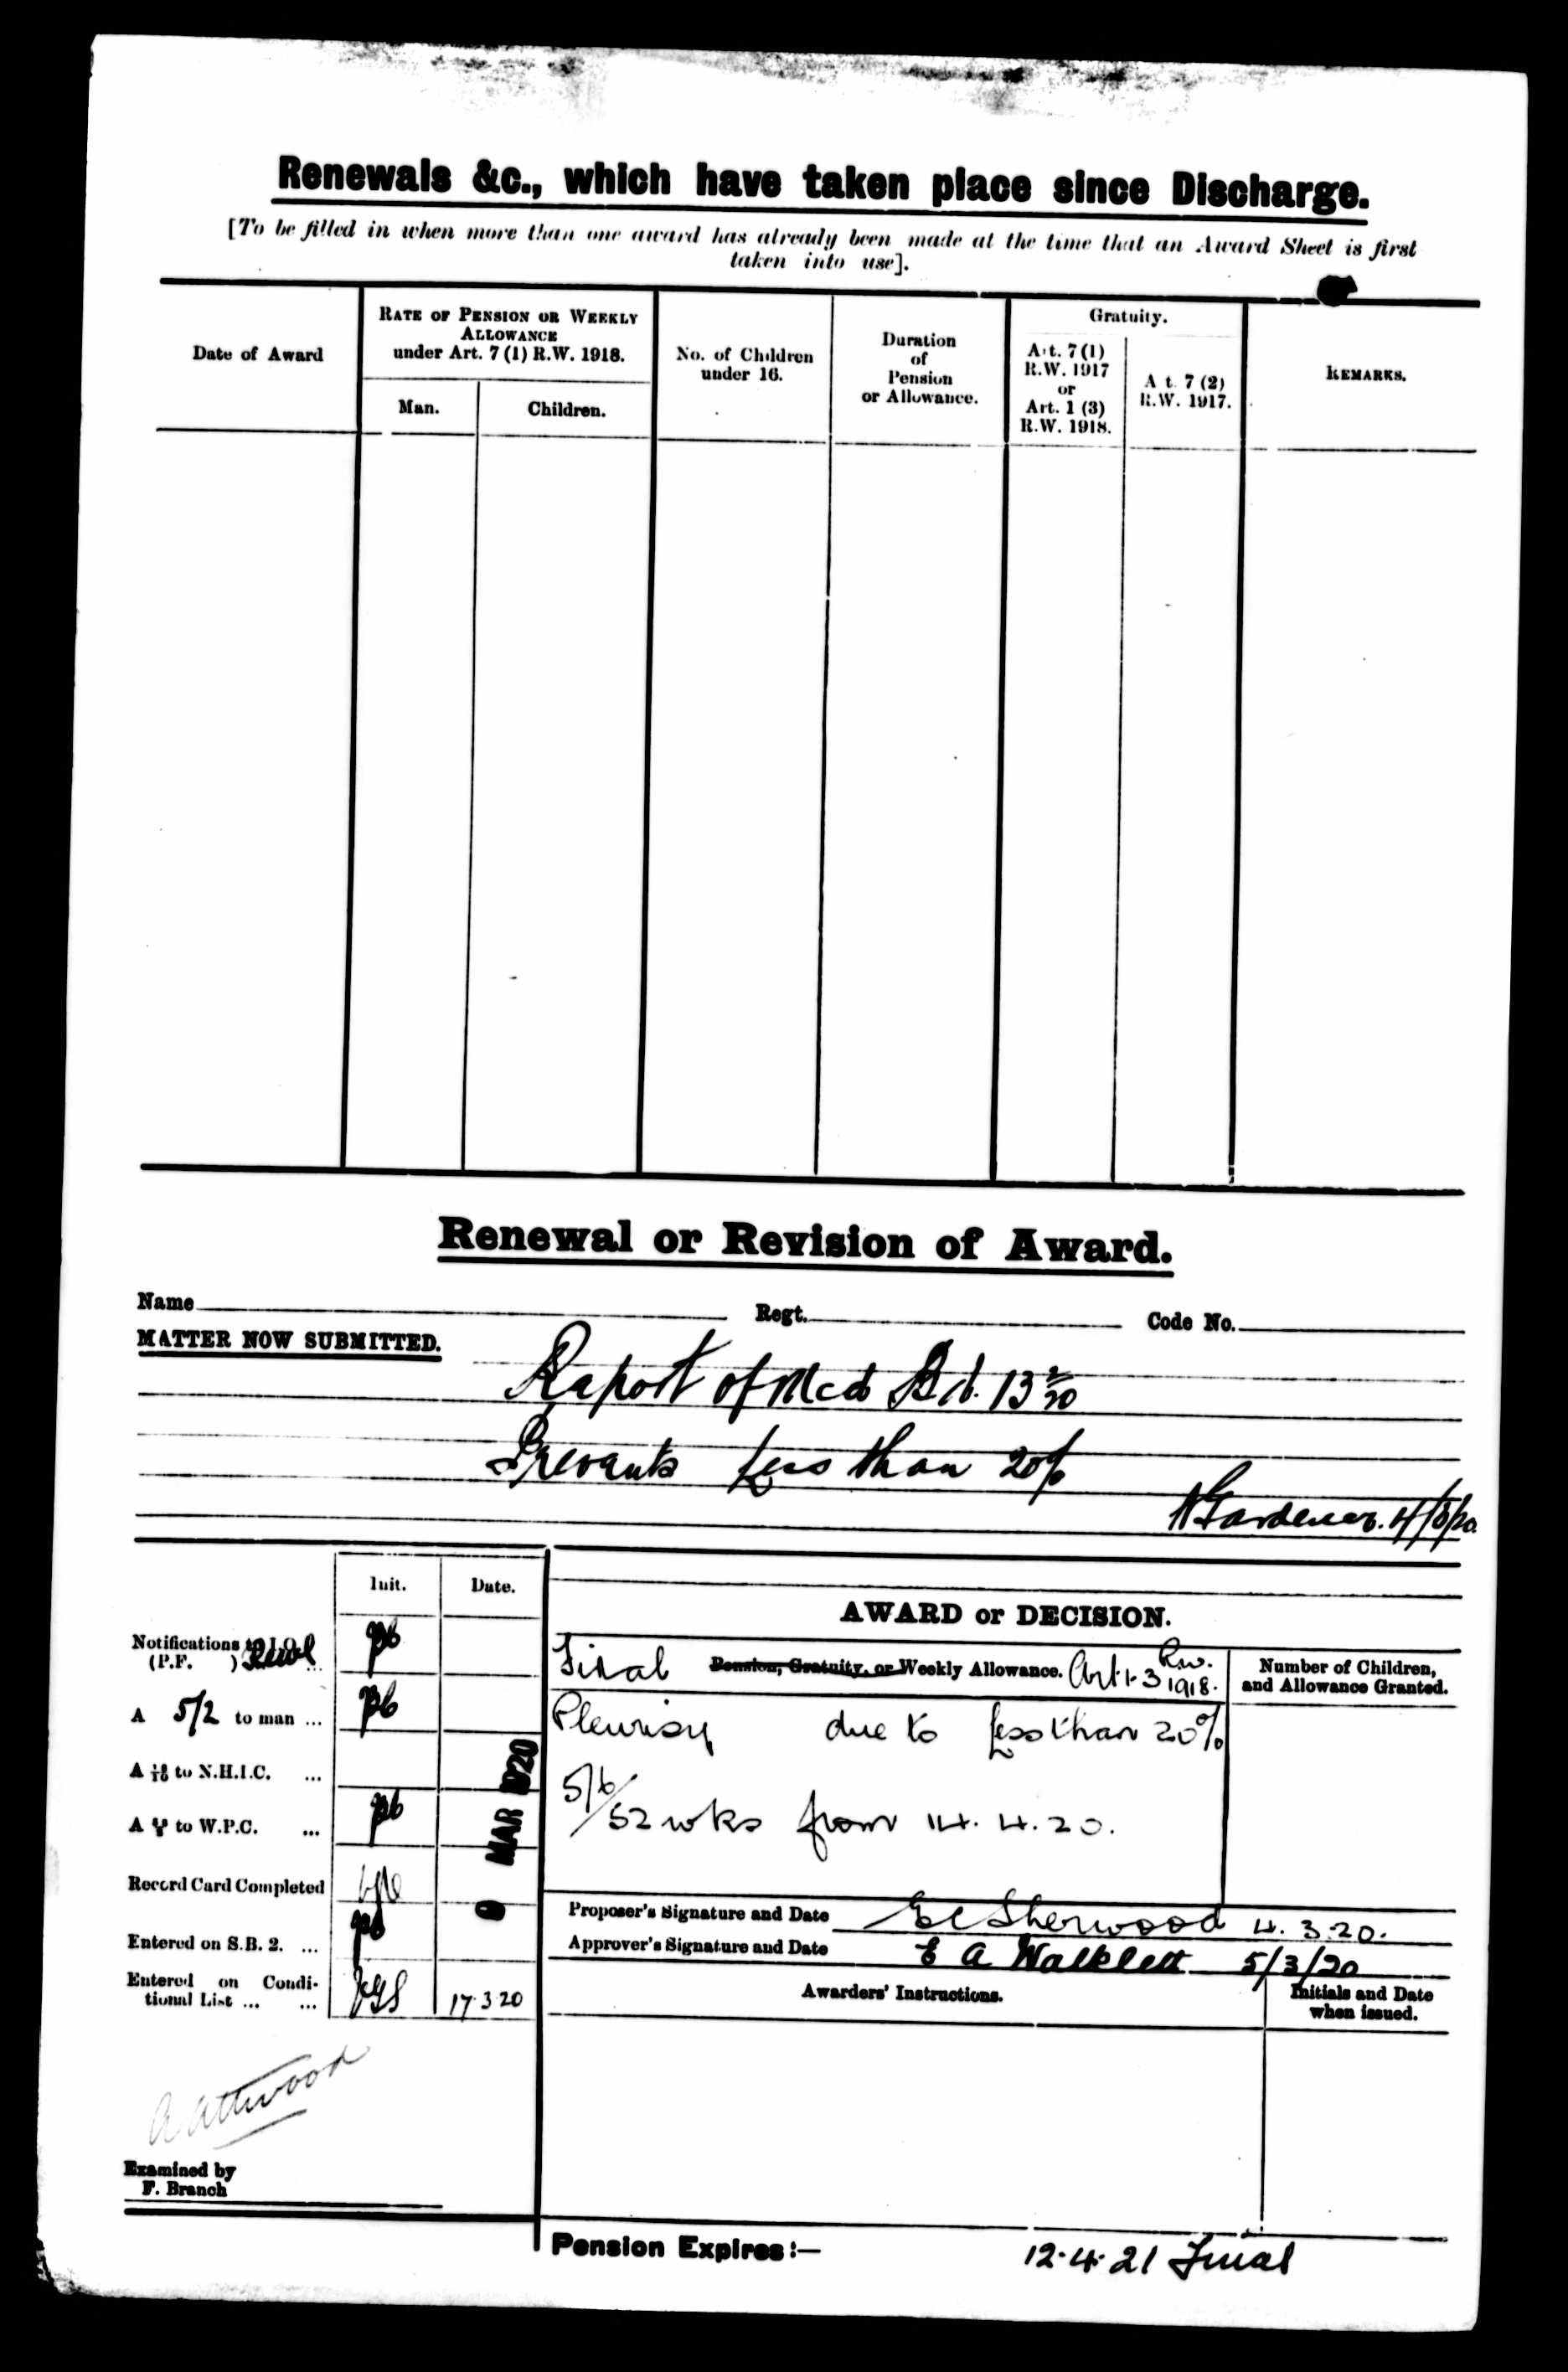 Renewals &c., which have taken place since Discharge.
[To be filled in when more than one award has already been made at the time that an Award Sheet is first
taken into use].
Date of Award
RATE OF PENSION OR WEEKLY
ALLOWANCE
under Art. 7 (1) R.W. 1918.
Man.
Children.
No. of Children
under 16.
Duration
of
Pension
or Allowance.
Gratuity.
Art. 7 (1)
R.W. 1917
or
Art. 1 (3)
R.W. 1918.
A t. 7 (2)
R.W. 1917.
REMARKS.
Renewal or Revision of Award.
Name
Regt.
Code No.
MATTER NOW SUBMITTED.
Report of Med Bd. 13 2/20
Less than 20%
Gardener. 4/3/20
Init.
Date.
Notifications to I.O.
(P.F. )
A 5/2 to man ...
A to N.H.I.C. ...
A to W.P.C. ...
Record Card Completed
Entered on S.B. 2. ...
Entered on Condi-
tional List ... ...
17.3.20
MAR 1920
A Attwood
Examined by
F. Branch
AWARD or DECISION.
Final Pension, Gratuity, or Weekly Allowance. Art. 1.3 R.W. 1918.
Number of Children,
and Allowance Granted.
Pleurisy due to Less than 20%
5/6/52 wks from 14.4.20.
Proposer's Signature and Date E C Sherwood 4.3.20.
Approver's Signature and Date E A Walklett 5/3/20
Awarders' Instructions.
Initials and Date
when issued.
Pension Expires:— 12.4.21 Final